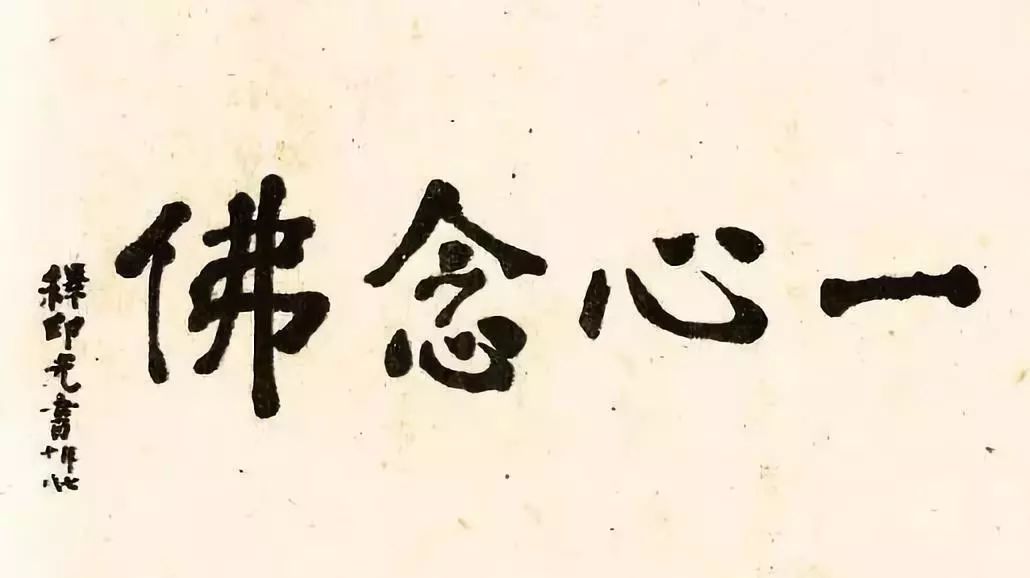 一心念佛
釋印光書
時年七十八